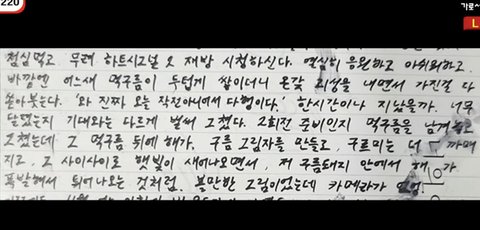 220
가로
L
점심먹고. 무려 하트시그널 2 재방 시청하신다. 열심히 응원하고 아쉬워하고.
바깥엔 어느새 먹구름이 두텁게 쌓이더니 온갖 괴성을 내면서 가진걸 다
쏟아붓는다. '와 진짜 오늘 작전아니어서 다행이다.' 한시간이나 지났을까. 너무
담았는지 기대와는 다르게 벌써 그쳤다. 2회전 준비인지 먹구름을 남겨놓고
그쳤는데 그 먹구름 뒤에 해가. 구름 그림자를 만들고, 구르미는 더 까매
지고, 그 사이사이로 햇빛이 새어나오면서, 저 구름돼지 안에서 해가
폭발해서 튀어나오는 것처럼. 볼만한 그림이었는데 카메라가